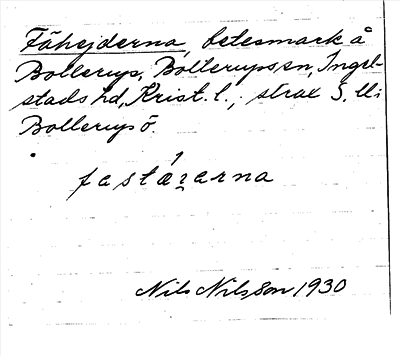 Fähejderna, betesmark å
Bollerup, Bollerups sn, Ingel-
stads hd, Krist. l.; strax S. 
Bollerup ö.
Nils Nilsson 1930